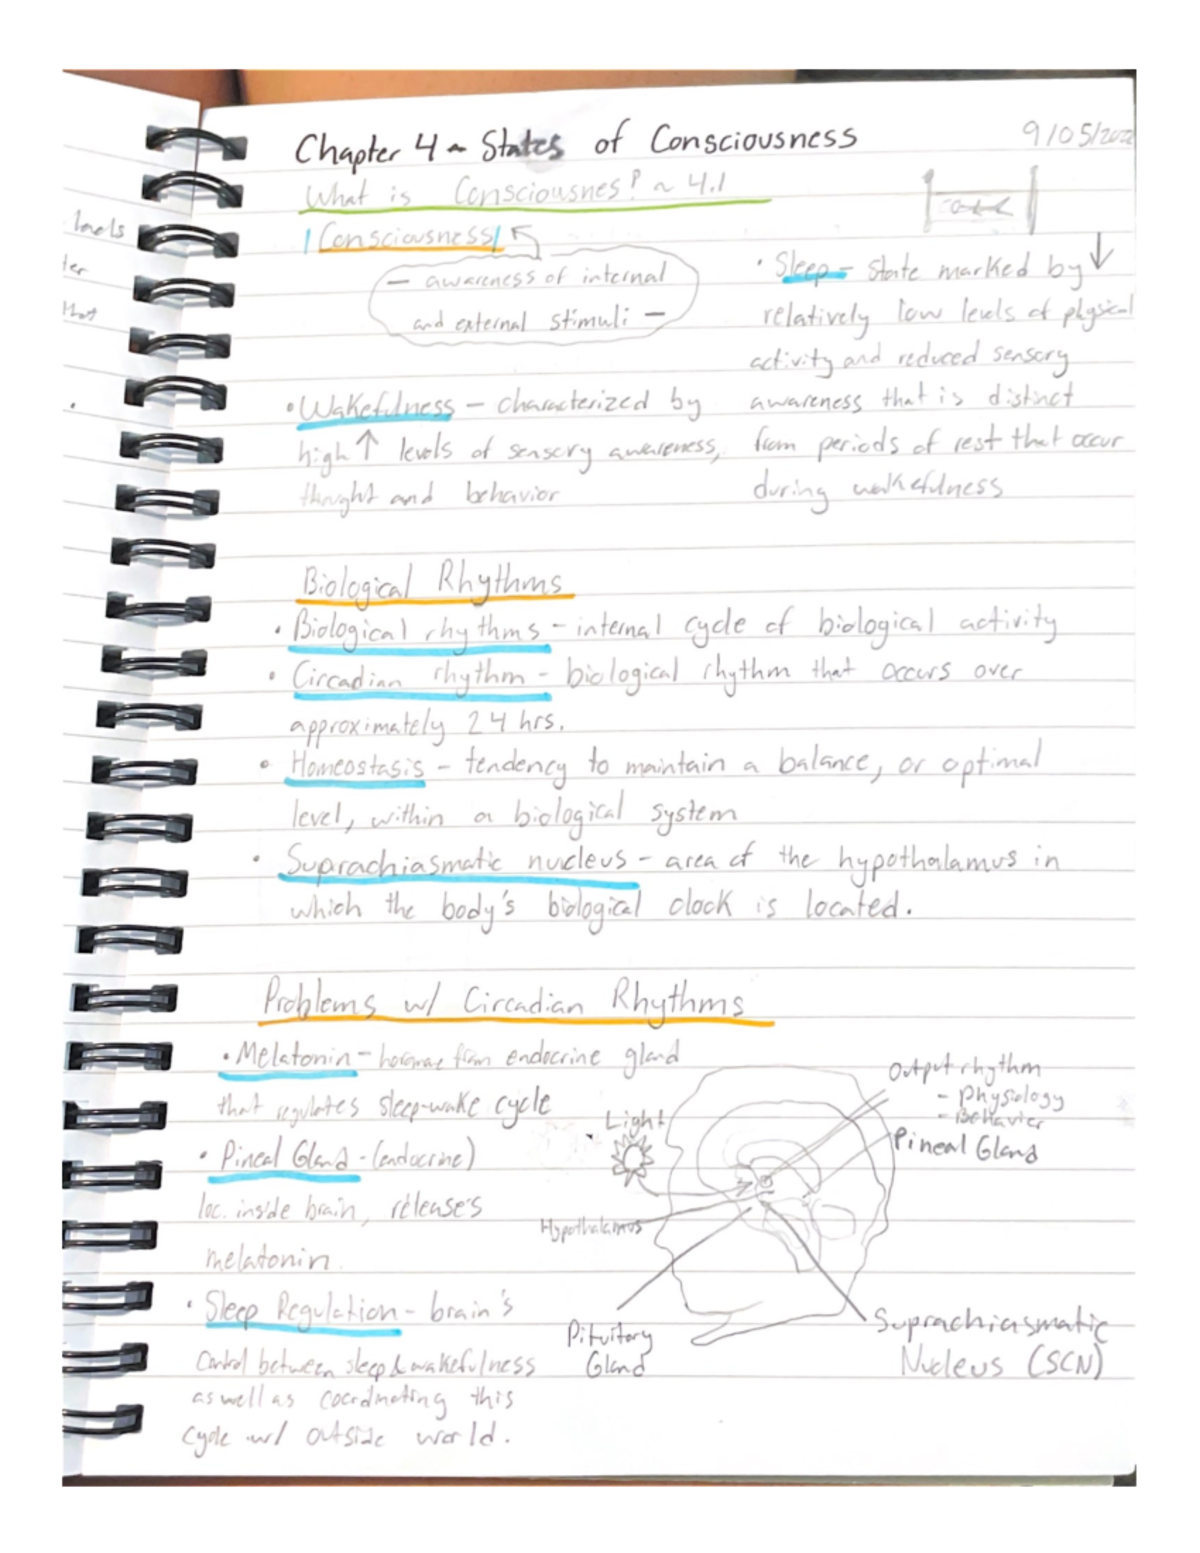 Chapter 4 ~ States of Consciousness
9/05/2022
What is Consciousnes? ~ 4.1
Consciousness
— awareness of internal
and external stimuli —
• Wakefulness – characterized by
high ↑ levels of sensory awareness,
thought and behavior
• Sleep – state marked by ↓
relatively low levels of physical
activity and reduced sensory
awareness that is distinct
from periods of rest that occur
during wakefulness
Biological Rhythms
• Biological rhythms – internal cycle of biological activity
• Circadian rhythm – biological rhythm that occurs over
approximately 24 hrs.
• Homeostasis – tendency to maintain a balance, or optimal
level, within a biological system
• Suprachiasmatic nucleus – area of the hypothalamus in
which the body's biological clock is located.
Problems w/ Circadian Rhythms
• Melatonin – hormone from endocrine gland
that regulates sleep-wake cycle
• Pineal Gland – (endocrine)
loc. inside brain, release's
melatonin.
• Sleep Regulation – brain's
Control between sleep & wakefulness
as well as coordinating this
cycle w/ outside world.
Light
Hypothalamus
Pituitory
Gland
Output rhythm
– Physiology
– Behavior
Pineal Gland
Suprachiasmatic
Nucleus (SCN)
levels
ter
that